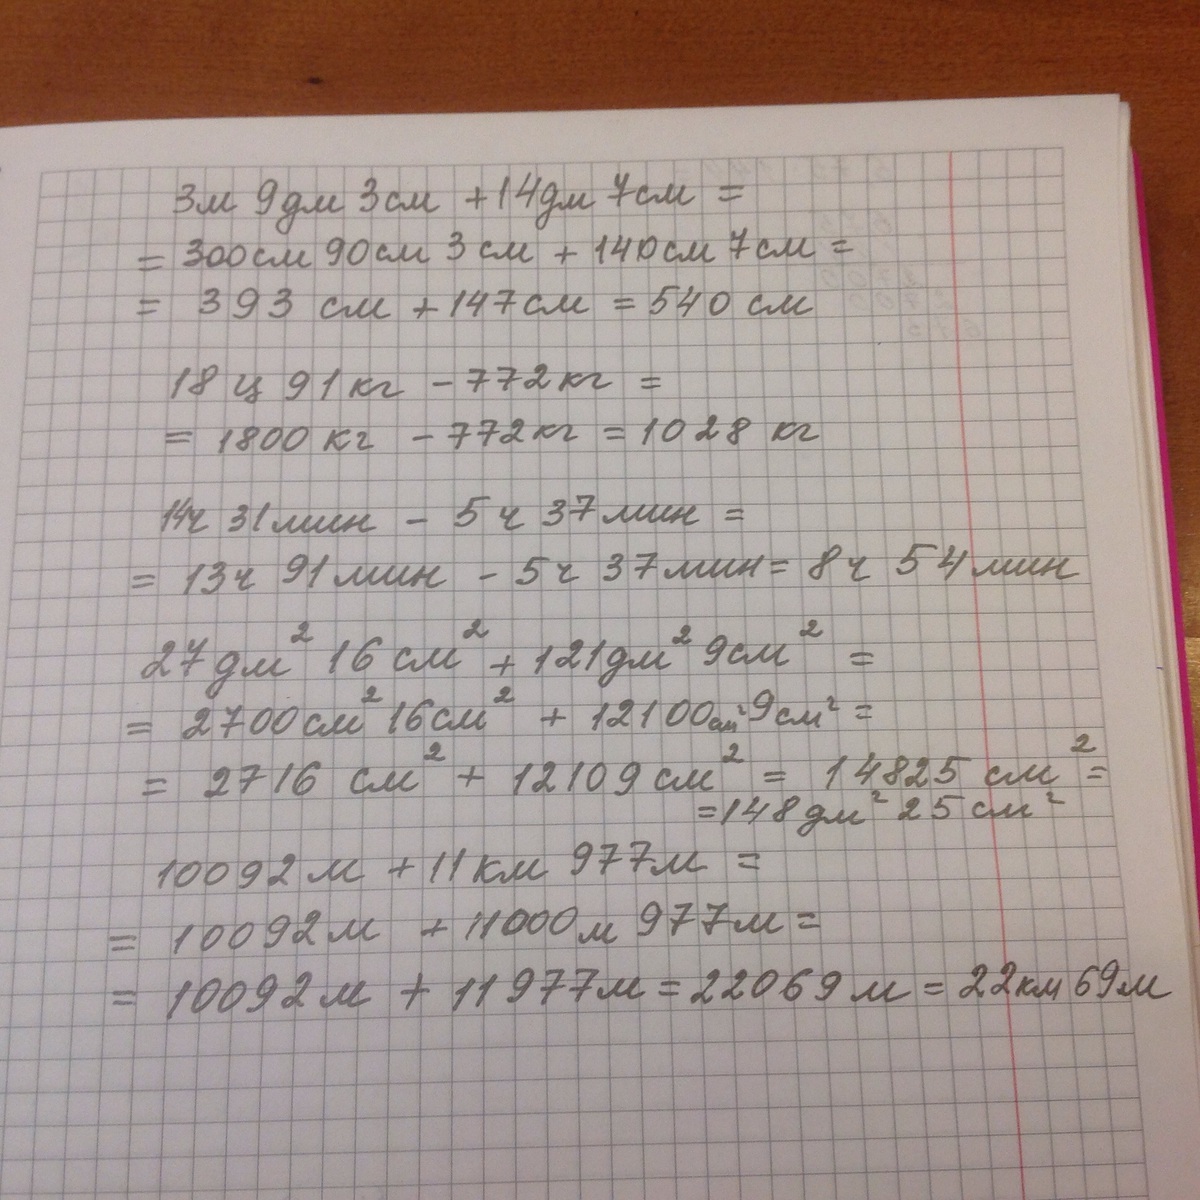 3м 9дм 3см + 14дм 7см =
= 300см 90см 3см + 140см 7см =
= 393 см + 147см = 540 см
18 ц 91кг - 772кг =
= 1800кг - 772кг = 1028 кг
14ч 31мин - 5ч 37мин =
= 13ч 91мин - 5ч 37мин = 8ч 54мин
27дм² 16см² + 121дм² 9см² =
= 2700см² 16см² + 12100см² 9см² =
= 2716 см² + 12109см² = 14825 см² =
= 148дм² 25см²
10092м + 11км 977м =
= 10092м + 11000м 977м =
= 10092м + 11977м = 22069м = 22км 69м